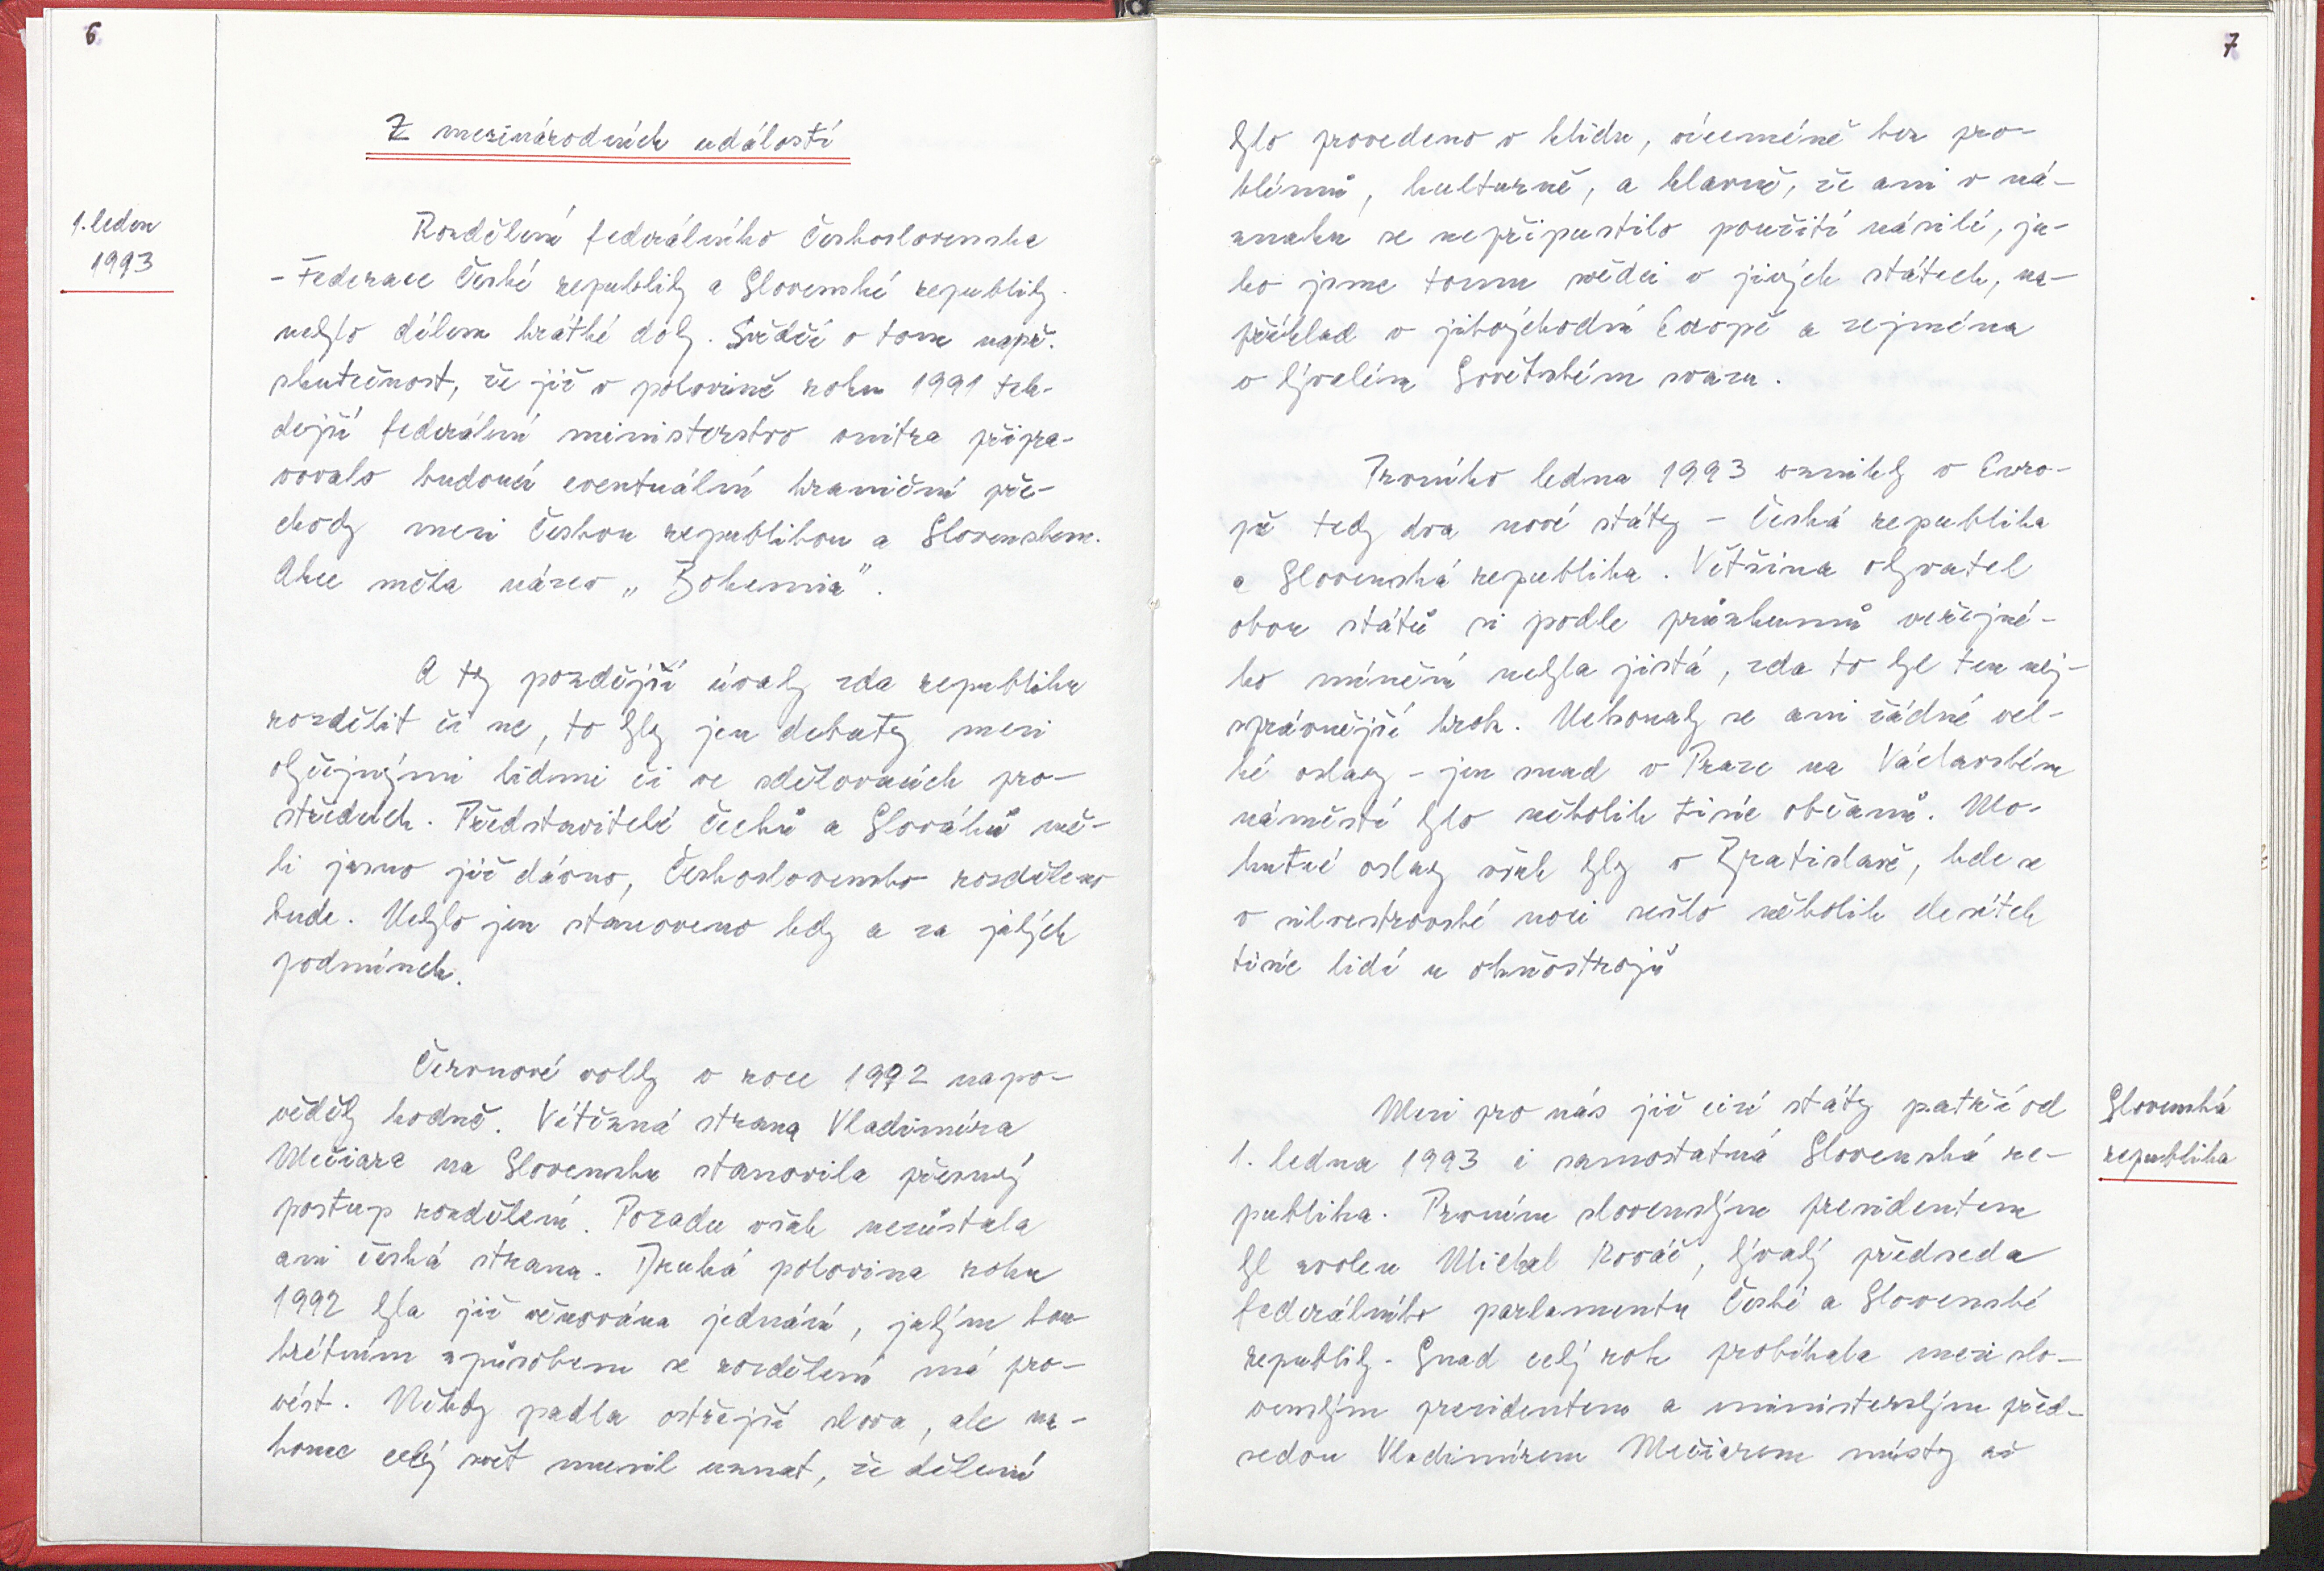 6
Z mezinárodních událostí
1. leden
1993
Rozdělení federálního Československa
- Federace České republiky a Slovenské republiky
nebylo dílem krátké doby. Svědčí o tom např.
skutečnost, že již v polovině roku 1991 teh-
dejší federální ministerstvo vnitra připra-
vovalo budoucí eventuální hraniční pře-
chody mezi Českou republikou a Slovenskem.
Akce měla název „Bohemia".
A ty pozdější úvahy zda republiku
rozdělit či ne, to byly jen debaty mezi
obyčejnými lidmi či ve sdělovacích pro-
středcích. Představitelé Čechů a Slováků mě-
li jasno již dávno, Československo rozděleno
bude. Nebylo jen stanoveno kdy a za jakých
podmínek.
Červnové volby v roce 1992 napo-
věděly hodně. Vítězná strana Vladimíra
Mečiara na Slovensku stanovila přesný
postup rozdělení. Pozadu však nezůstala
ani česká strana. Druhá polovina roku
1992 byla již věnována jednání, jakým kon
krétním způsobem se rozdělení má pro-
vést. Někdy padla ostřejší slova, ale na-
konec celý svět musil uznat, že dělení
7
bylo provedeno v klidu, víceméně bez pro-
blémů, kulturně, a hlavně, že ani v ná-
znaku se nepřipustilo použití násilí, ja-
ko jsme tomu svědci v jiných státech, na-
příklad v jihovýchodní Evropě a zejména
v bývalém Sovětském svazu.
Prvního ledna 1993 vznikly v Evro-
pě tedy dva nové státy - Česká republika
a Slovenská republika. Většina obyvatel
obou států si podle průzkumů veřejné-
ho mínění nebyla jistá, zda to byl ten nej-
správnější krok. Nekonaly se ani žádné vel-
ké oslavy - jen snad v Praze na Václavském
náměstí bylo několik tisíc občanů. Mo-
hutné oslavy však byly v Bratislavě, kde se
v silvestrovské noci sešlo několik desítek
tisíc lidí u ohňostrojů
Mezi pro nás již cizí státy patří od
1. ledna 1993 i samostatná Slovenská re-
publika. Prvním slovenským presidentem
byl zvolen Michal Kováč, bývalý předseda
federálního parlamentu České a Slovenské
republiky. Snad celý rok probíhala mezi slo-
venským prezidentem a ministerským před-
sedou Vladimírem Mečiarem místy až
Slovenská
republika